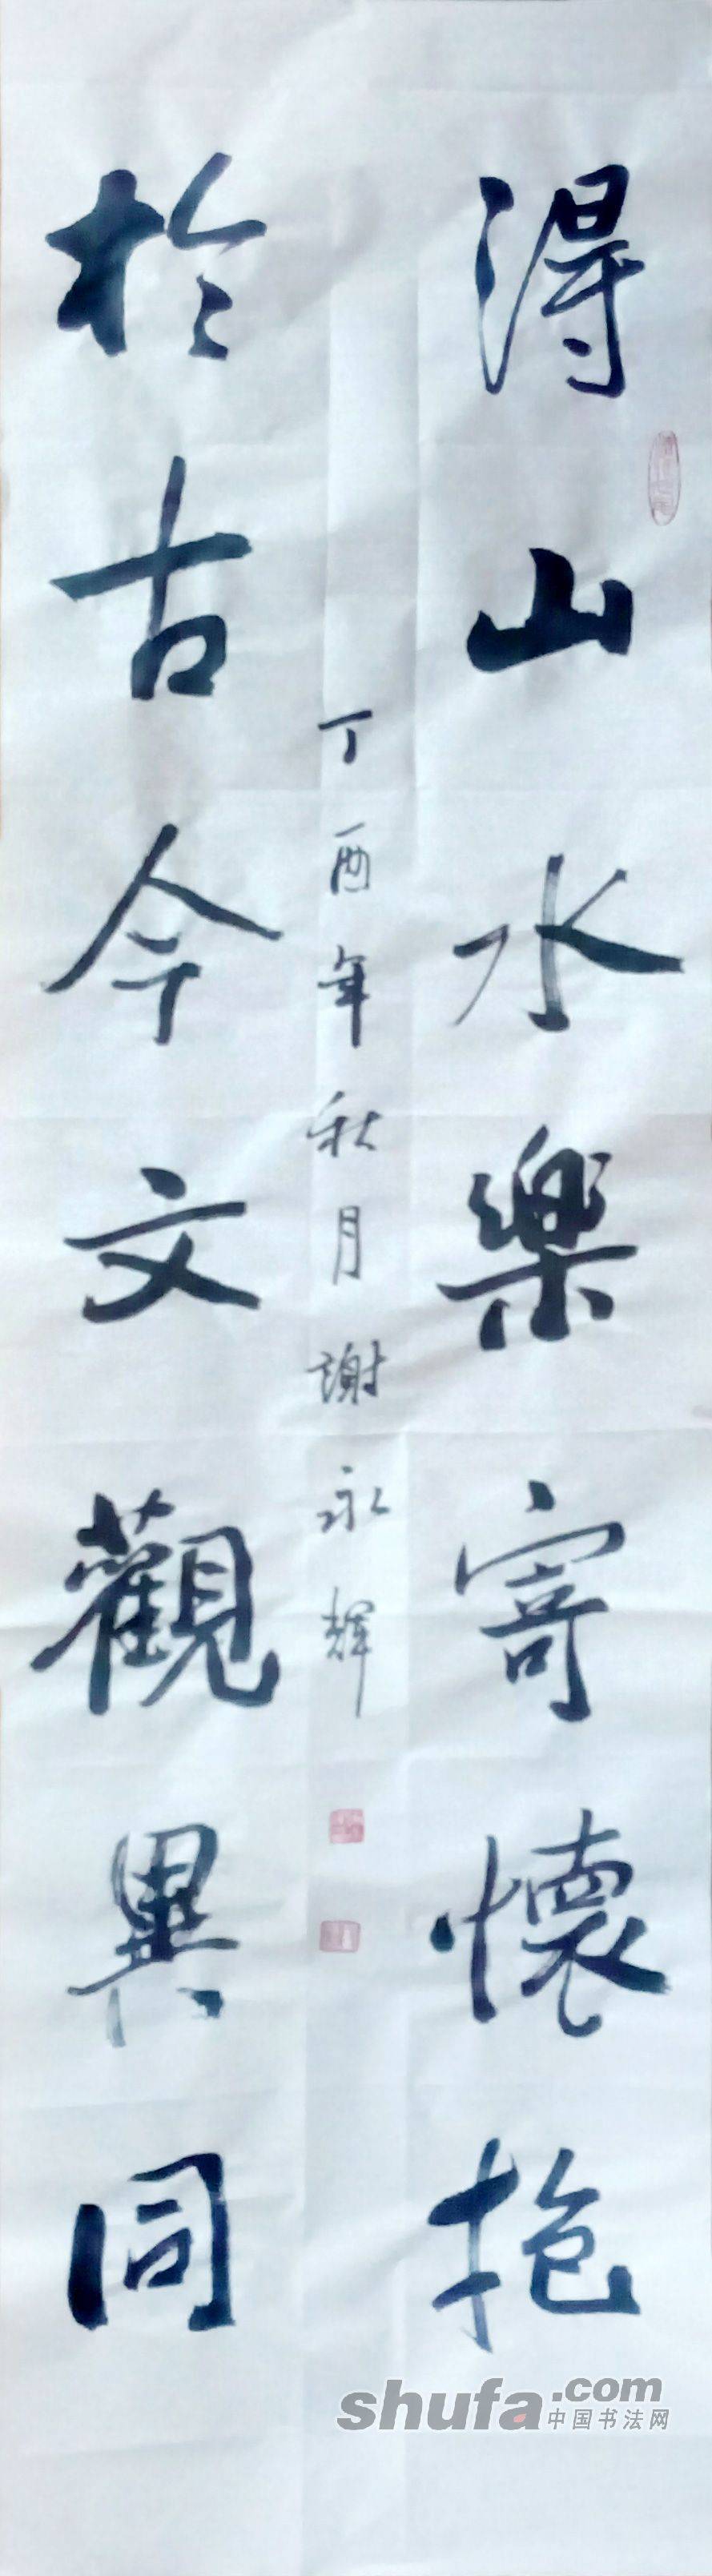 得山水樂寄懷抱
於古今文觀異同
丁酉年秋月謝永輝
shufa.com
中国书法网